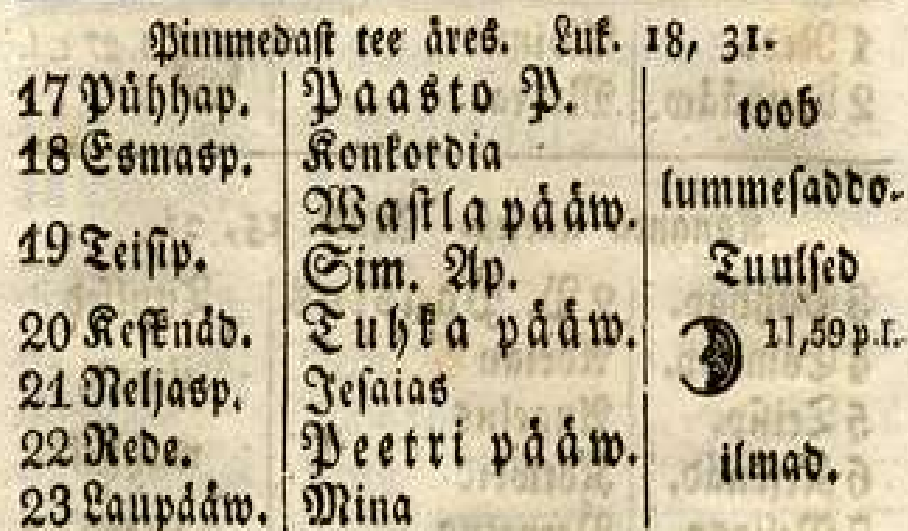 Pimmedast tee äres. Luk. 18, 31.
17 Pühhap. Paasto P. toob
18 Esmasp. Konkordia
lummesaddo-
19 Teisip. Wastla pääw.
Sim. Ap. Tuulsed
20 Kesknäd. Tuhka pääw. 11,59 p.l.
21 Neljasp. Jesaias
22 Rede. Peetri pääw. ilmad.
23 Laupääw. Mina